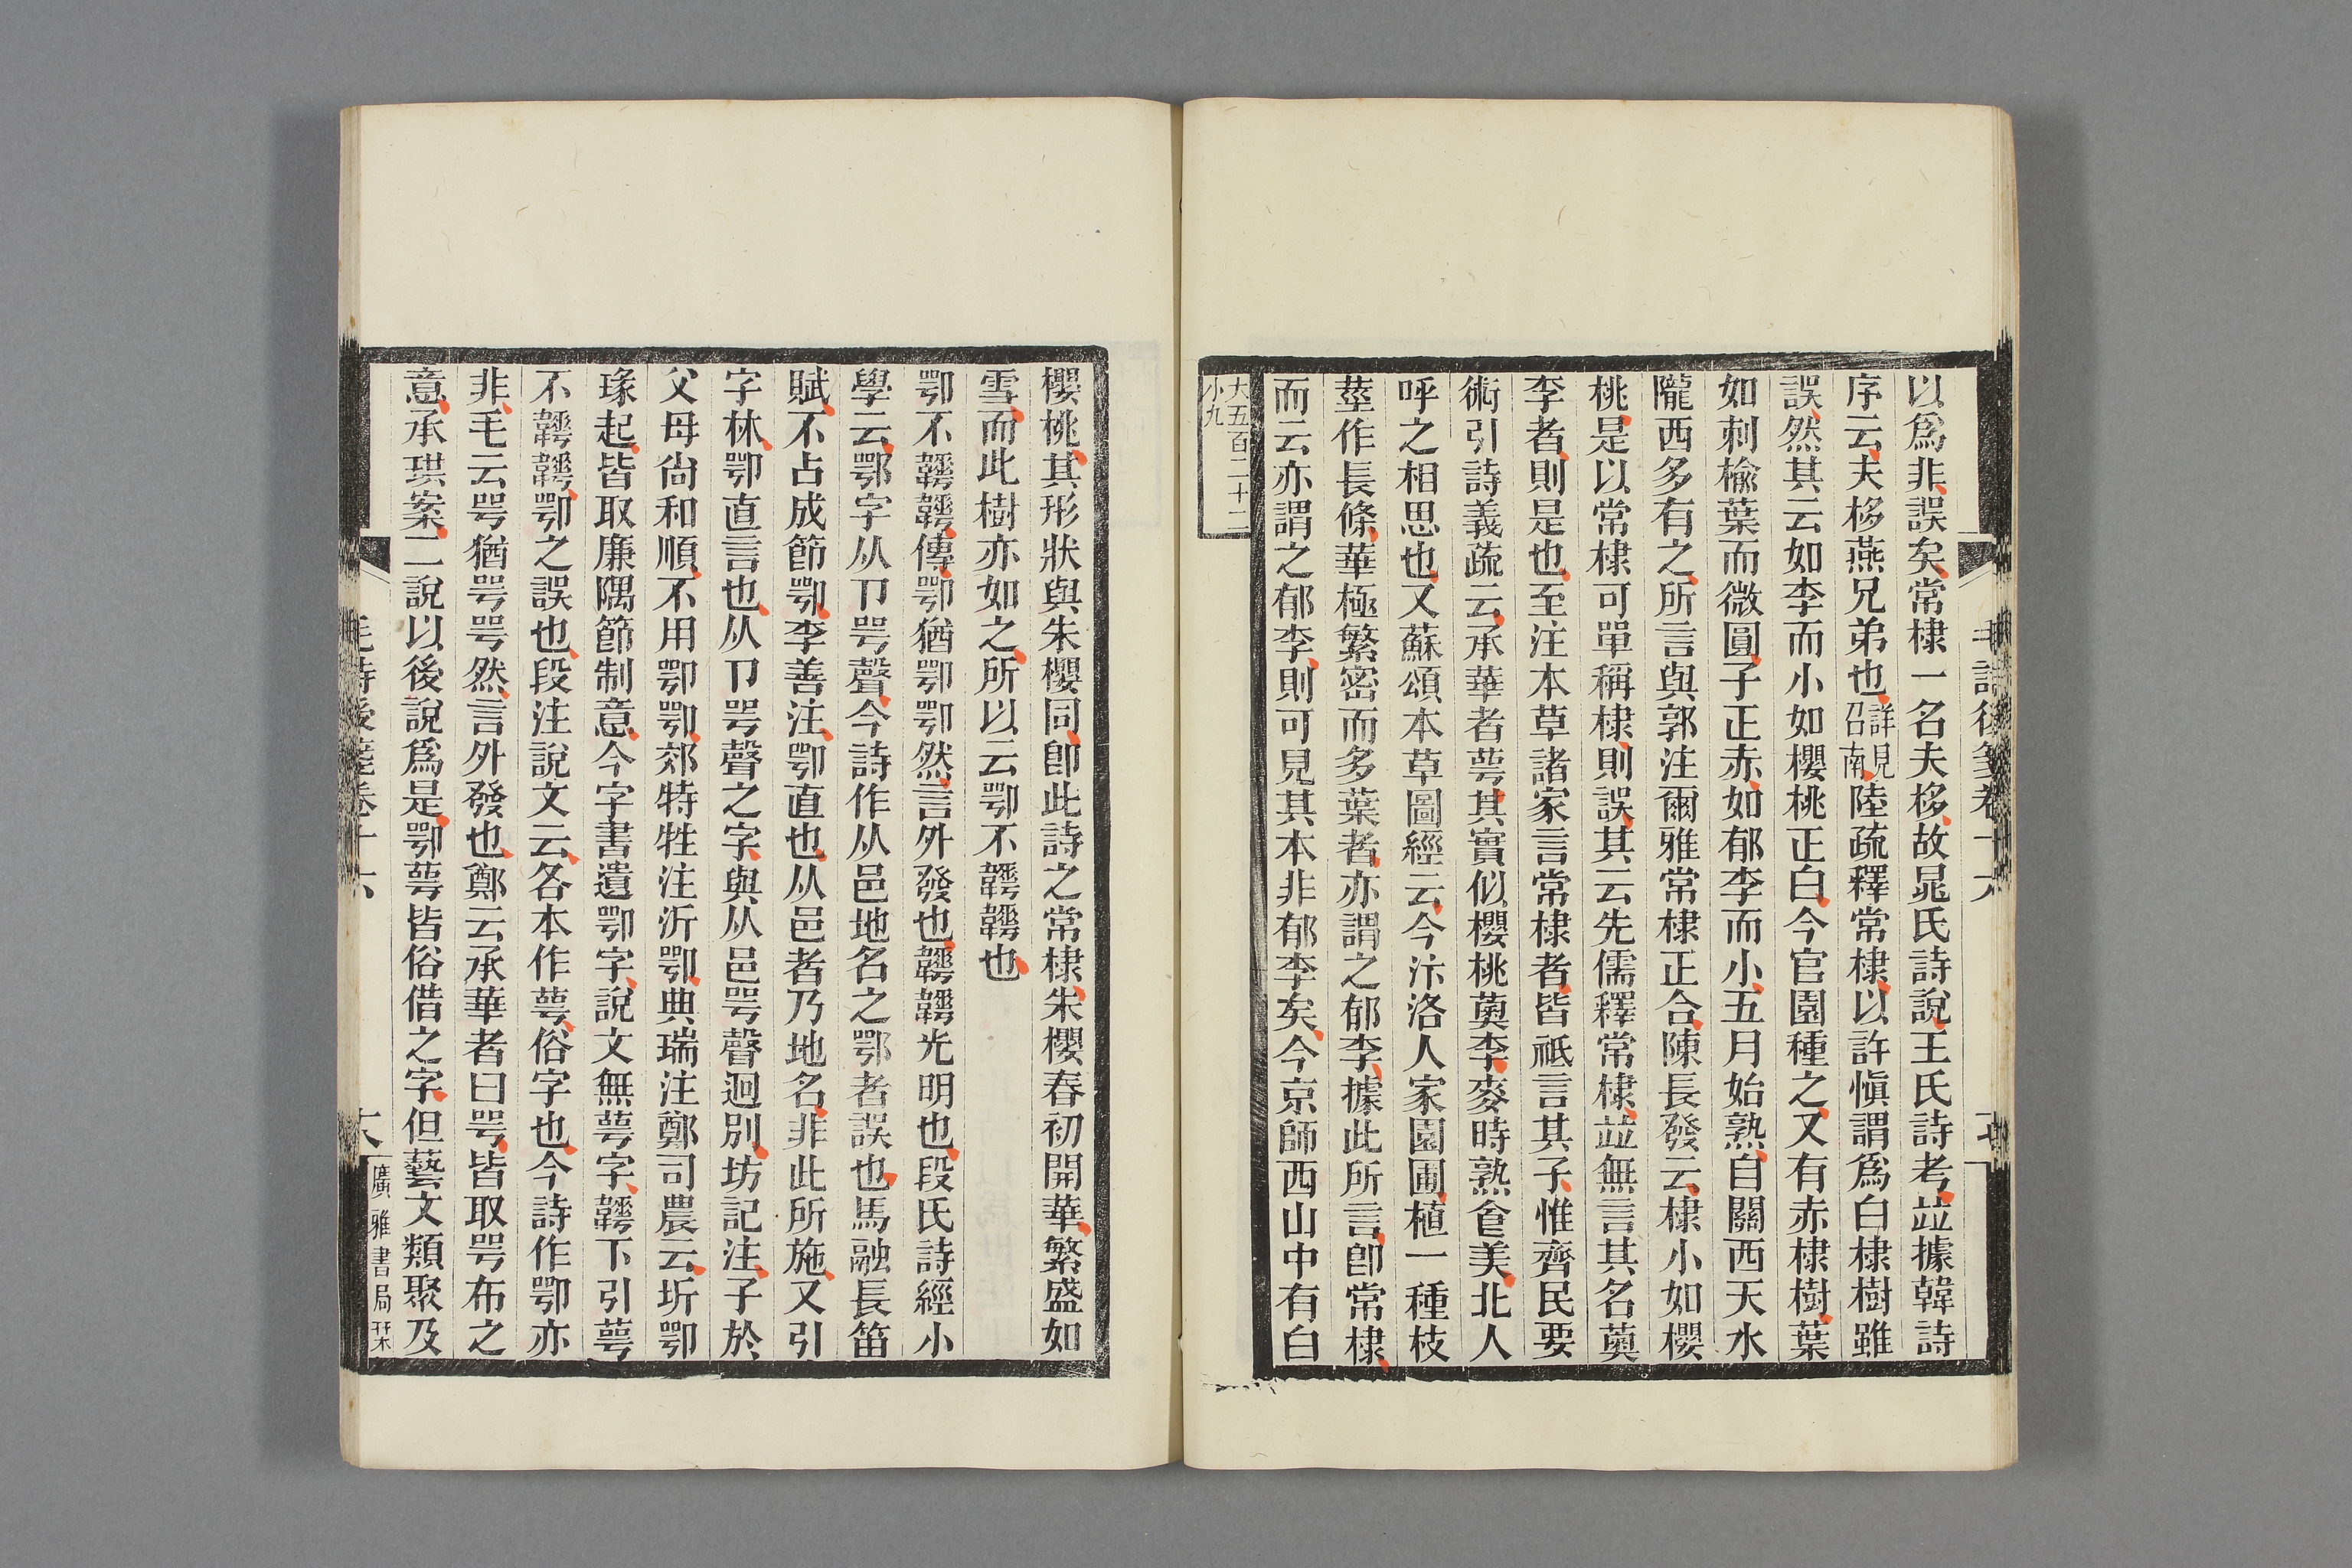 以爲非誤矣常棣一名夫栘故晁氏詩說王氏詩考竝據韓詩
序云夫栘燕兄弟也詳見召南陸疏釋常棣以許愼謂爲白棣樹雖
誤然其云如李而小如櫻桃正白今官園種之又有赤棣樹葉
如刺楡葉而微圓子正赤如郁李而小五月始熟自關西天水
隴西多有之所言與郭注爾雅常棣正合陳長發云棣小如櫻
桃是以常棣可單稱棣則誤其云先儒釋常棣竝無言其名薁
李者則是也至注本草諸家言常棣者皆祗言其子惟齊民要
術引詩義疏云承華者萼其實似櫻桃薁李麥時熟食美北人
呼之相思也又蘇頌本草圖經云今汴洛人家園圃植一種枝
莖作長條華極繁密而多葉者亦謂之郁李據此所言卽常棣
而云亦謂之郁李則可見其本非郁李矣今京師西山中有白
大五百二十二
小九
櫻桃其形狀與朱櫻同卽此詩之常棣朱櫻春初開華繁盛如
雪而此樹亦如之所以云鄂不韡韡也
鄂不韡韡傳鄂猶鄂鄂然言外發也韡韡光明也段氏詩經小
學云鄂字从卩咢聲今詩作从邑地名之鄂者誤也馬融長笛
賦不占成節鄂李善注鄂直也从邑者乃地名非此所施又引
字林鄂直言也从卩咢聲之字與从邑咢聲迥別坊記注子於
父母尙和順不用鄂鄂郊特牲注沂鄂典瑞注鄭司農云圻鄂
瑑起皆取廉隅節制意今字書遺鄂字說文無萼字韡下引萼
不韡韡鄂之誤也段注說文云各本作萼俗字也今詩作鄂亦
非毛云咢猶咢咢然言外發也鄭云承華者曰咢皆取咢布之
意承珙案二說以後說爲是鄂萼皆俗借之字但藝文類聚及
毛詩後箋卷十六
十八
廣雅書局栞